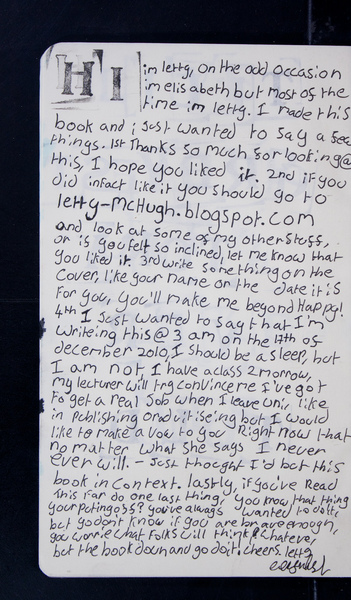 HI im letty, on the odd occasion
im elisabeth but most of the
time im letty. I made this
book and i just wanted to say a few
things. 1st Thanks so much for looking@
this, I hope you liked it. 2nd if you
did infact like it you should go to
letty-McHugh.blogspot.com
and look at some of my other stuff,
or is you felt so inclined, let me know that
you liked it. 3rd write something on the
cover, like your name or the date it is
For you, you'll make me beyond Happy!
4th I Just wanted to say that I'm
writeing this @ 3 am on the 17th of
december 2010, I should be asleep, but
I am not I have a class 2morrow,
my lecturer will try convince me I've got
to get a real Job when I leave uni, like
in Publishing or advitiseing but I would
like to make a vow to you Right now that
no matter what she says I never
ever will. - Just thought I'd but this
book in context. lastly, if you've Read
This far do one last thing, you know that thing
your puting off? you've always wanted to do it,
but go don't know if you are brave enough,
you worrie what folks will think? Whatever,
but the book down and go do it! cheers. letty